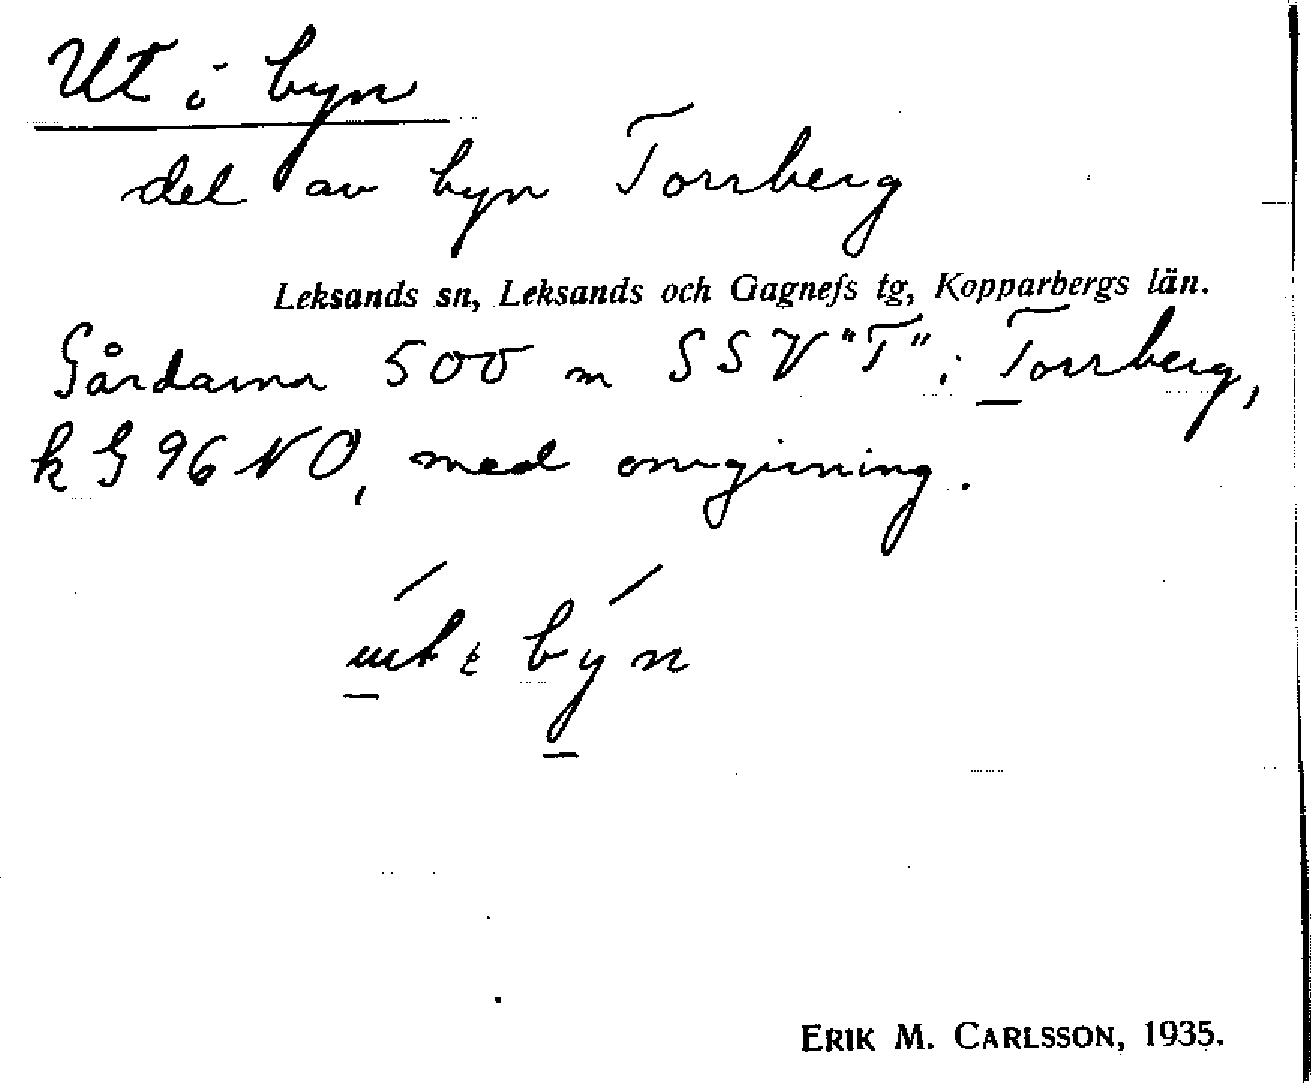 Ut i byn
del av byn Torrberg
Leksands sn, Leksands och Gagnefs tg, Kopparbergs län.
Gårdarna 500 m SSV "T" i Torrberg,
k G 96 NO, med omgivning.
býn
ERIK M. CARLSSON, 1935.